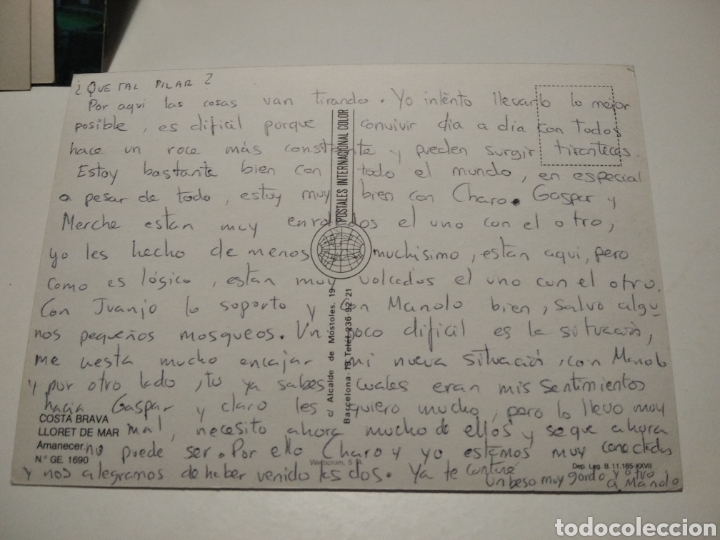 ¿QUE TAL PILAR?
Por aqui las cosas van tirando. Yo intento llevarlo lo mejor
posible, es dificil porque convivir dia a día con todos
hace un roce más constante y pueden surgir tiranteces.
Estoy bastante bien con todo el mundo, en especial
a pesar de todo, estoy muy bien con Charo. Gaspar y
Merche estan muy enrollados el uno con el otro,
yo les hecho de menos muchisimo, estan aqui, pero
como es lógico, estan muy volcados el uno con el otro.
Con Juanjo lo soporto y con Manolo bien, salvo algu-
nos pequeños mosqueos. Un poco dificil es la situación,
me cuesta mucho encajar mi nueva situación, con Manolo
y por otro lado, tu ya sabes cuales eran mis sentimientos
hacia Gaspar y claro les quiero mucho, pero lo llevo muy
mal, necesito ahora mucho de ellos y se que ahora
no puede ser. Por ello Charo y yo estamos muy
y nos alegramos de haber venido las dos. Ya te contaré
un beso muy gordo y otro
a Manolo
POSTALES INTERNACIONAL COLOR
c/ Alcalde de Móstoles, 19
Barcelona-13 Teléf. 236 92 21
COSTA BRAVA
LLORET DE MAR
Amanecer
N.º GE. 1690
Dep. Leg. B. 11.165-XXVII
todocoleccion